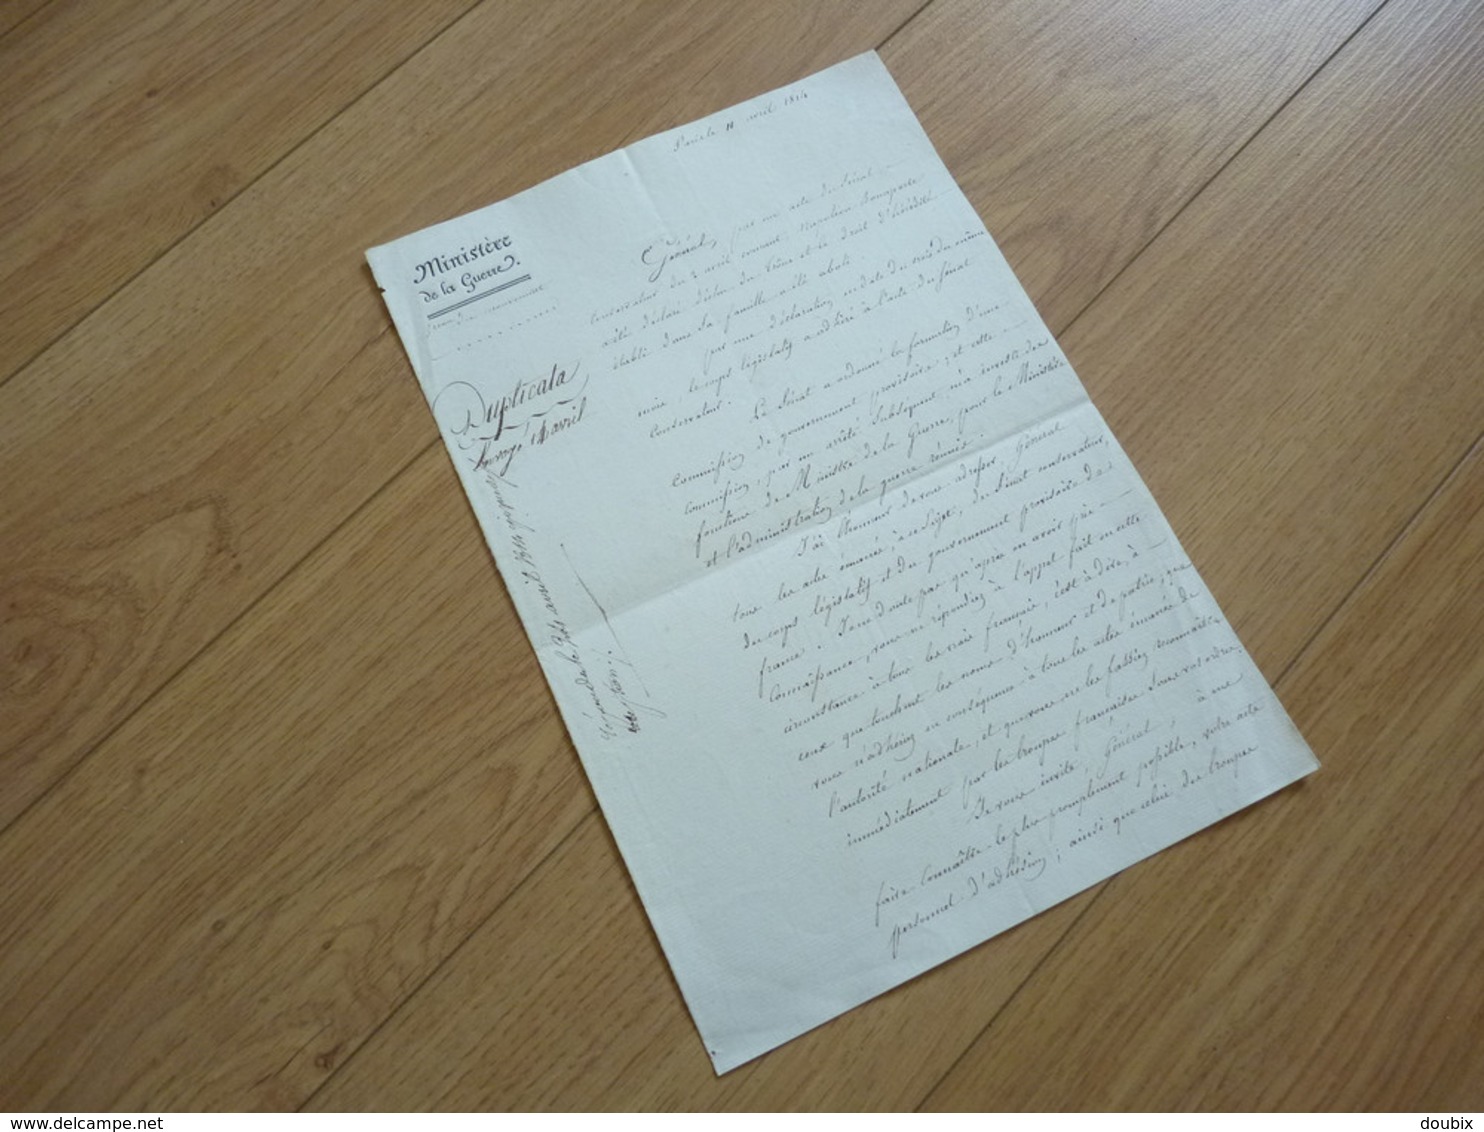 Paris le 11 avril 1814
Ministère
de la Guerre.
Duplicata
avril
Général, par un acte du Sénat
Conservateur du 3 avril courant, Napoléon Bonaparte
a été déclaré déchu du trône et le droit d'hérédité
établi dans sa famille a été aboli.
par une déclaration en date du trois du même
mois, le corps législatif a adhéré à l'acte du Sénat
Conservateur.
Le Sénat a ordonné la formation d'une
Commission de gouvernement provisoire; et cette
Commission, par un arrêté subséquent, m'a investi des
fonctions de Ministre de la Guerre, pour le Ministère
et l'administration de la guerre réunis.
J'ai l'honneur de vous adresser, Général
tous les actes émanés, à ce sujet, du Sénat conservateur,
du corps législatif et du gouvernement provisoire de
france. Je ne doute pas qu'après en avoir pris
Connaissance, vous ne répondiez à l'appel fait en cette
circonstance à tous les vrais français, c'est à dire, à
ceux que touchent les noms d'honneur et de patrie; que
vous n'adhériez en conséquence à tous les actes émanés de
l'autorité nationale, et que vous ne les fassiez reconnaître
immédiatement par les troupes françaises sous vos ordres.
Je vous invite, Général, à me
faire connaître le plus promptement possible, votre acte
personnel d'adhésion, ainsi que celui des troupes
delcampe.net
doubix